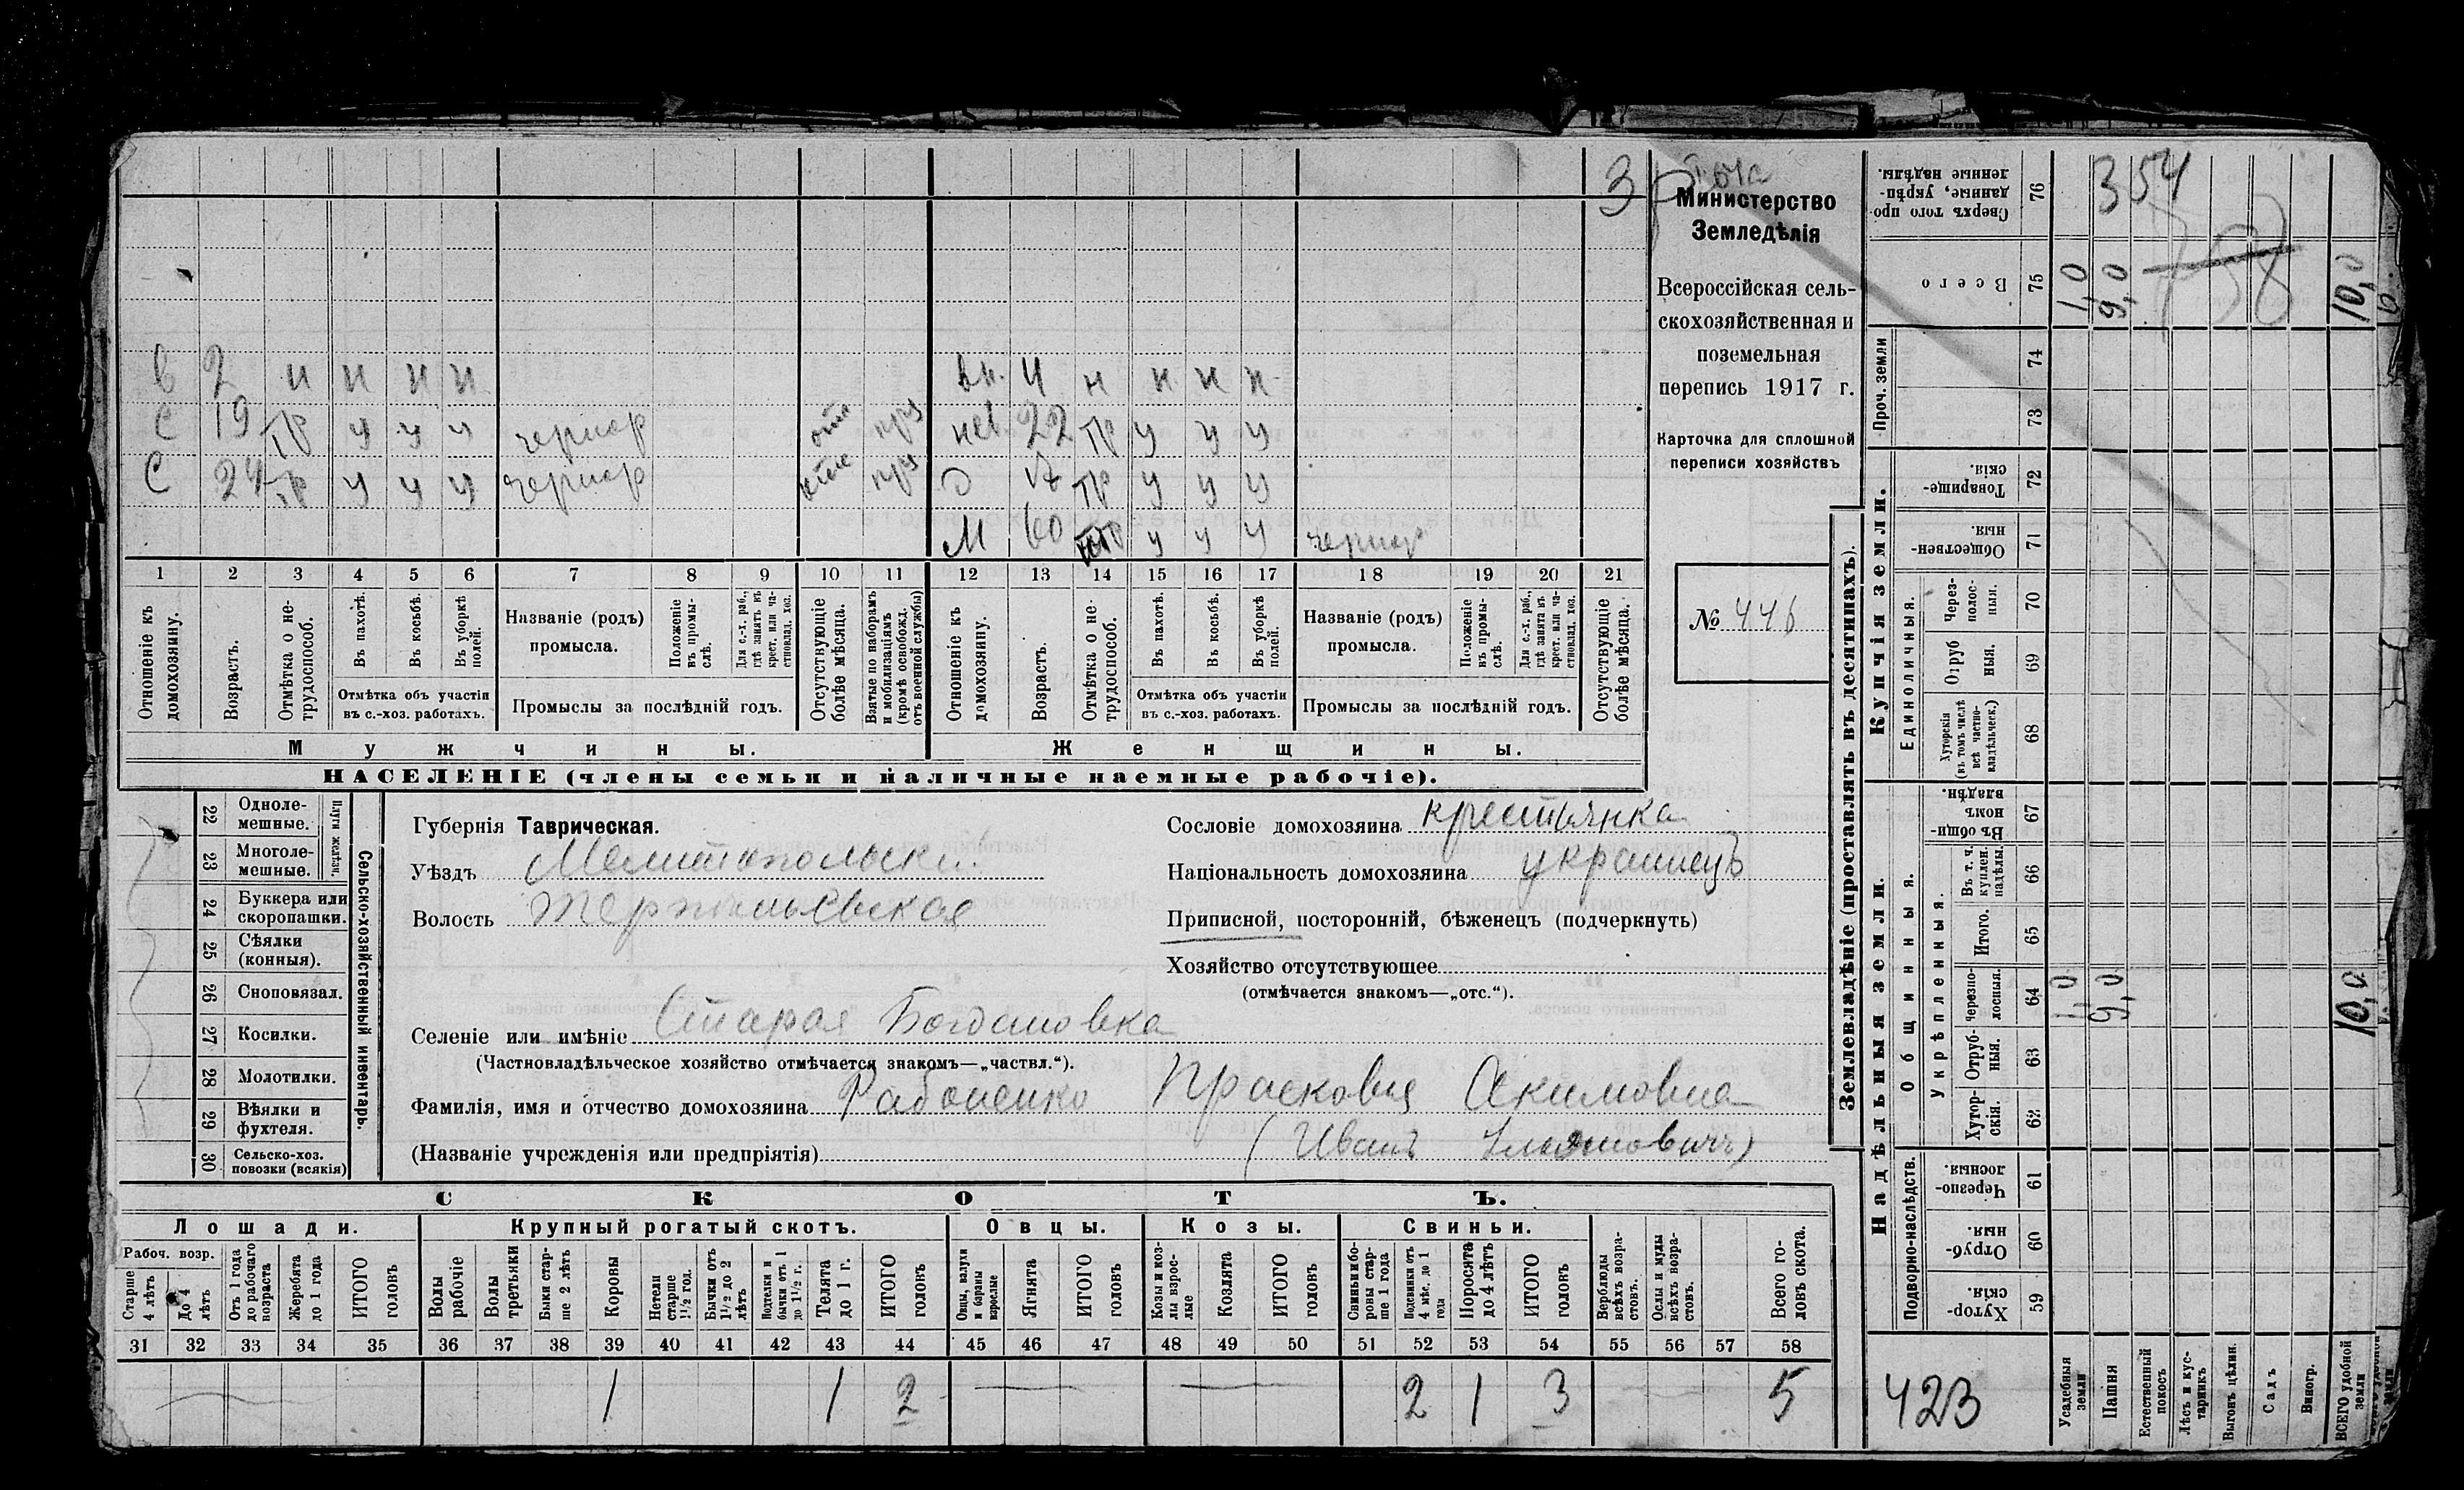 3
354
Министерство
Земледѣлія
Всероссійская сель-
скохозяйственная и
поземельная
перепись 1917 г.
Карточка для сплошной
переписи хозяйствъ
№ 446
в 2 н н н н вн. 4 н н н н
С 19 тр у у у чернор отс пр нев 22 тр у у у
С 24 тр у у у чернор отс пр D 17 тр у у у
М 60 у у у чернор
1 2 3 4 5 6 7 8 9 10 11 12 13 14 15 16 17 18 19 20 21
Отношеніе къ домохозяину.
Возрастъ.
Отмѣтка о не-трудоспособ.
Въ пахотѣ.
Въ косьбѣ.
Въ уборкѣ полей.
Отмѣтка объ участіи
въ с.-хоз. работахъ.
Названіе (родъ)
промысла.
Положеніе въ промы-слѣ.
Для с.-х. раб., гдѣ занятъ въ крест. или ча-стновлад. хоз.
Промыслы за послѣдній годъ.
Отсутствующіе болѣе мѣсяца.
Взятые по наборамъ и мобилизаціямъ (кромѣ освобожд. отъ военной службы)
Отношеніе къ домохозяину.
Возрастъ.
Отмѣтка о не-трудоспособ.
Въ пахотѣ.
Въ косьбѣ.
Въ уборкѣ полей.
Отмѣтка объ участіи
въ с.-хоз. работахъ.
Названіе (родъ)
промысла.
Положеніе въ промы-слѣ.
Для с.-х. раб., гдѣ занята въ крест. или ча-стновлад. хоз.
Промыслы за послѣдній годъ.
Отсутствующіе болѣе мѣсяца.
Мужчины. Женщины.
НАСЕЛЕНІЕ (члены семьи и наличные наемные рабочіе).
22 Одноле-мешные.
23 Многоле-мешные.
Плуги желѣзн.
24 Буккера или скоропашки.
25 Сѣялки (конныя).
26 Сноповязал.
27 Косилки.
28 Молотилки.
29 Вѣялки и фухтеля.
30 Сельско-хоз. повозки (всякія)
Сельско-хозяйственный инвентарь.
Губернія Таврическая.
Уѣздъ Мелитопольски.
Волость
Сословіе домохозяина крестьянка
Національность домохозяина украинецъ
Приписной, посторонній, бѣженецъ (подчеркнуть)
Хозяйство отсутствующее
(отмѣчается знакомъ—„отс.“).
Селеніе или имѣніе Старая Богдановка
(Частновладѣльческое хозяйство отмѣчается знакомъ—„частвл.“).
Фамилія, имя и отчество домохозяина Прасковия Акимовна
(Названіе учрежденія или предпріятія) (Иванъ
СКОТЪ.
Лошади. Крупный рогатый скотъ. Овцы. Козы. Свиньи.
Рабоч. возр.
Старше 4 лѣтъ
До 4 лѣтъ
Отъ 1 года до рабочаго возраста
Жеребята до 1 года
ИТОГО головъ
Волы рабочіе
Волы третьяки
Быки стар-ше 2 лѣтъ
Коровы
Нетели старше 1½ год.
Бычки отъ 1½ до 2 лѣтъ
Подтелки и бычки отъ 1 до 1½ г.
Телята до 1 г.
ИТОГО головъ
Овцы, валухи и бараны взрослые
Ягнята
ИТОГО головъ
Козы и коз-лы взрос-лые
Козлята
ИТОГО головъ
Свиньи и бо-ровы стар-ше 1 года
Подсвинки отъ 4 мѣс. до 1 года
Поросята до 4 лѣтъ
ИТОГО головъ
Верблюды всѣхъ возра-стовъ.
Ослы и мулы всѣхъ возра-стовъ.
Всего го-ловъ скота.
31 32 33 34 35 36 37 38 39 40 41 42 43 44 45 46 47 48 49 50 51 52 53 54 55 56 57 58
1 1 2 2 1 3 5
Землевладѣніе (проставлять въ десятинахъ).
Сверхъ того про-данные, укрѣп-ленные надѣлы. 76
Всего 75 1,0 9,0 10,0
Проч. земли 74 73
Купчія земли.
Товарище-скія. 72
Обществен-ныя. 71
Единоличныя.
Через-полос-ныя. 70
Отруб ныя. 69
Хуторскія (въ томъ числѣ всѣ частно-владѣльческ.) 68
Надѣльныя земли.
Общинныя.
Въ общи-номъ владѣн. 67
Укрѣпленныя.
Въ т. ч. куплен. надѣлы. 66
Итого. 65
Черезпо-лосныя. 64 1,0 9,0 10,0
Отруб-ныя. 63
Хутор-скія. 62
Подворно-наслѣдств.
Черезпо-лосныя 61
Отруб-ныя 60
Хутор-скія. 59
423
Усадебныя земли
Пашня
Естественный покосъ
Лѣсъ и кус-тарникъ
Выгонъ цѣлин.
Садъ
Виногр.
ВСЕГО удобной земли